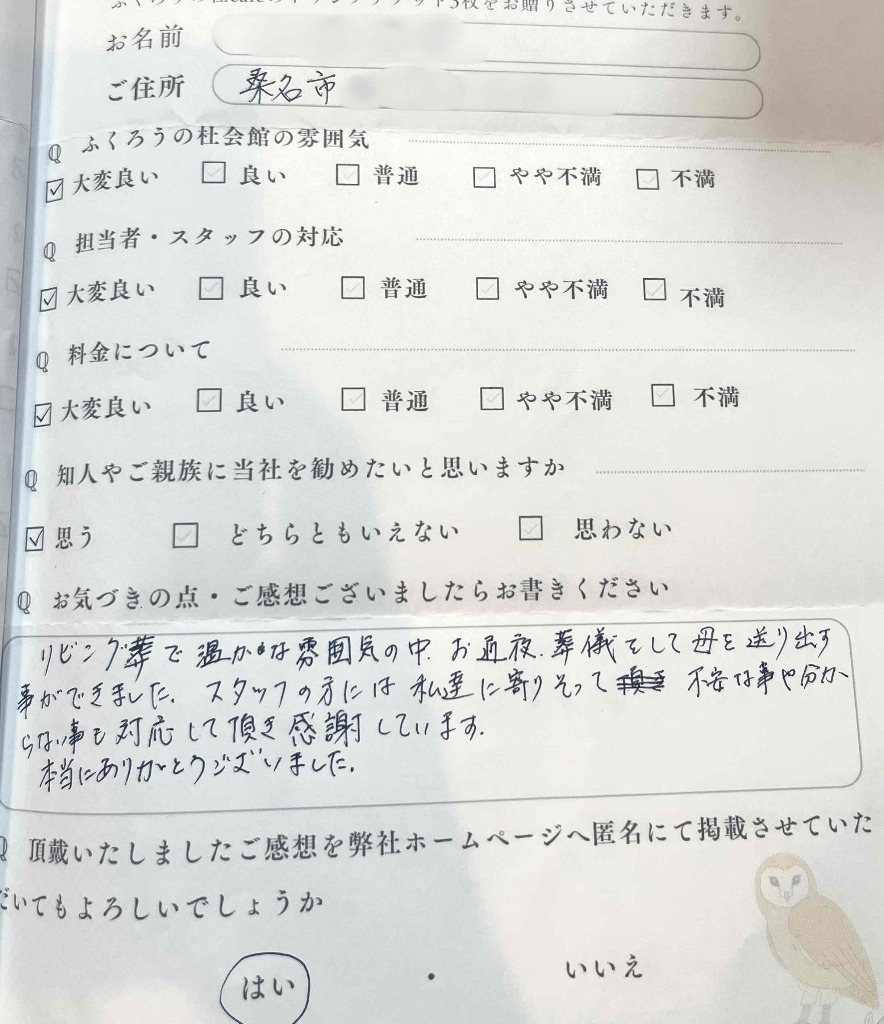 ドリンクチケット3枚をお贈りさせていただきます。
お名前
ご住所 桑名市
Q ふくろうの杜会館の雰囲気
☑ 大変良い ☐ 良い ☐ 普通 ☐ やや不満 ☐ 不満
Q 担当者・スタッフの対応
☑ 大変良い ☐ 良い ☐ 普通 ☐ やや不満 ☐ 不満
Q 料金について
☑ 大変良い ☐ 良い ☐ 普通 ☐ やや不満 ☐ 不満
Q 知人やご親族に当社を勧めたいと思いますか
☑ 思う ☐ どちらともいえない ☐ 思わない
Q お気づきの点・ご感想ございましたらお書きください
リビング葬で温かな雰囲気の中、お通夜、葬儀をして母を送り出す
事ができました。スタッフの方には私達に寄りそって 不安な事や分か
らない事も対応して頂き感謝しています。
本当にありがとうございました。
Q 頂戴いたしましたご感想を弊社ホームページへ匿名にて掲載させていた
だいてもよろしいでしょうか
はい ・ いいえ